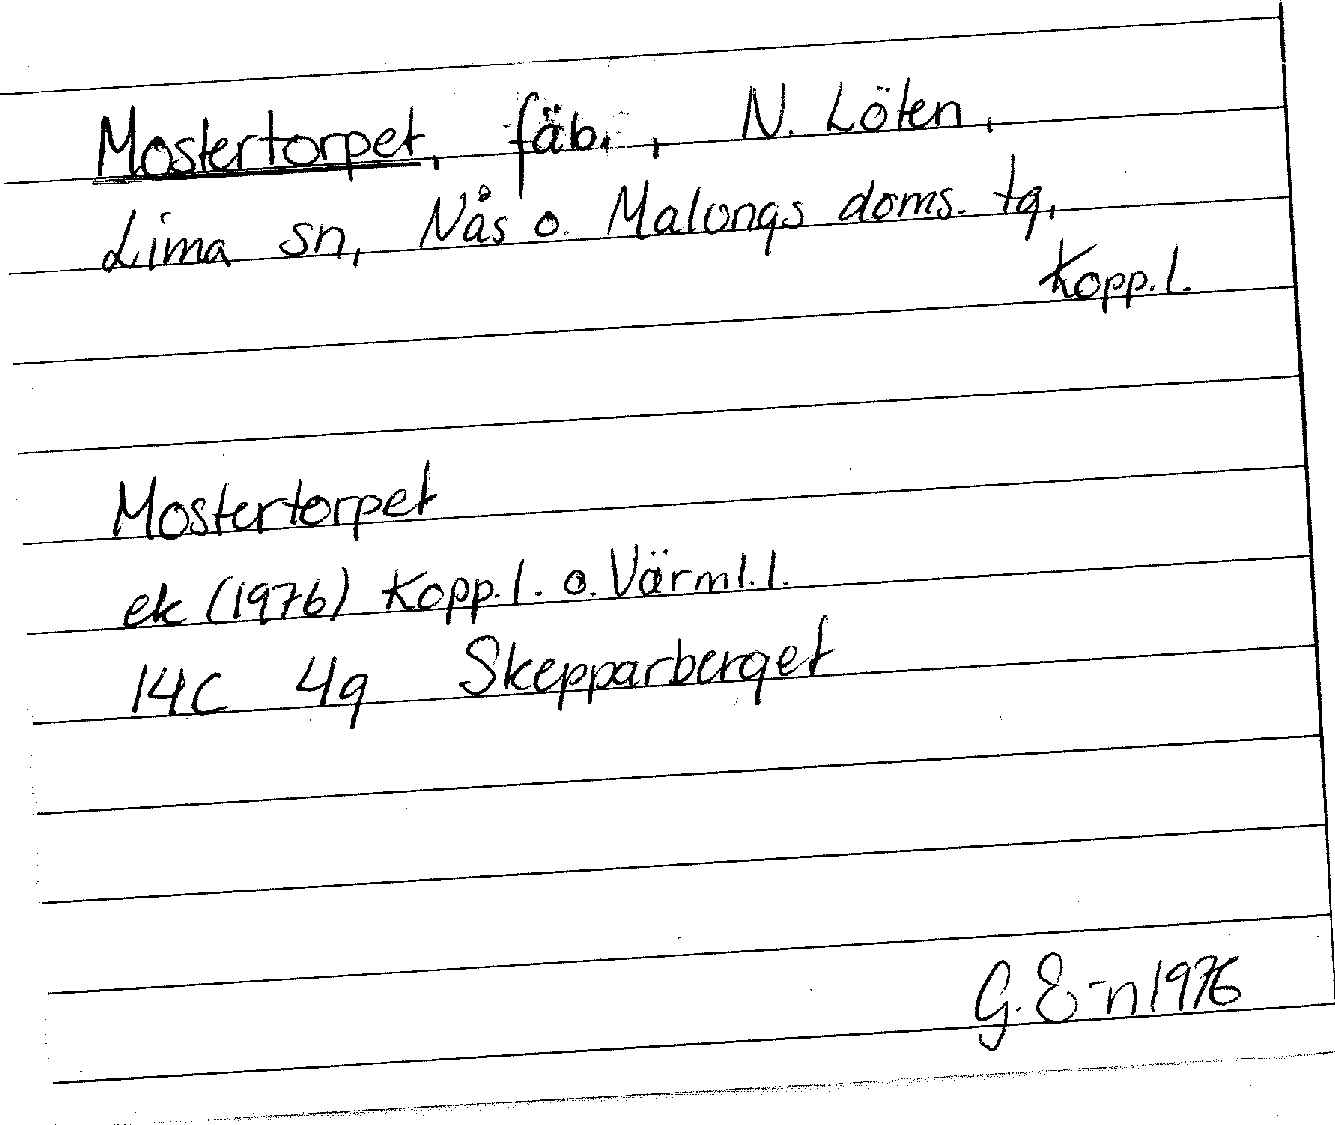 Mostertorpet, fäb., N. Löten,
Lima sn, Nås o. Malungs doms. tg,
Kopp.l.
Mostertorpet
ek (1976) Kopp.l. o. Värml.l.
14C 4g Skepparberget
G. E-n 1976